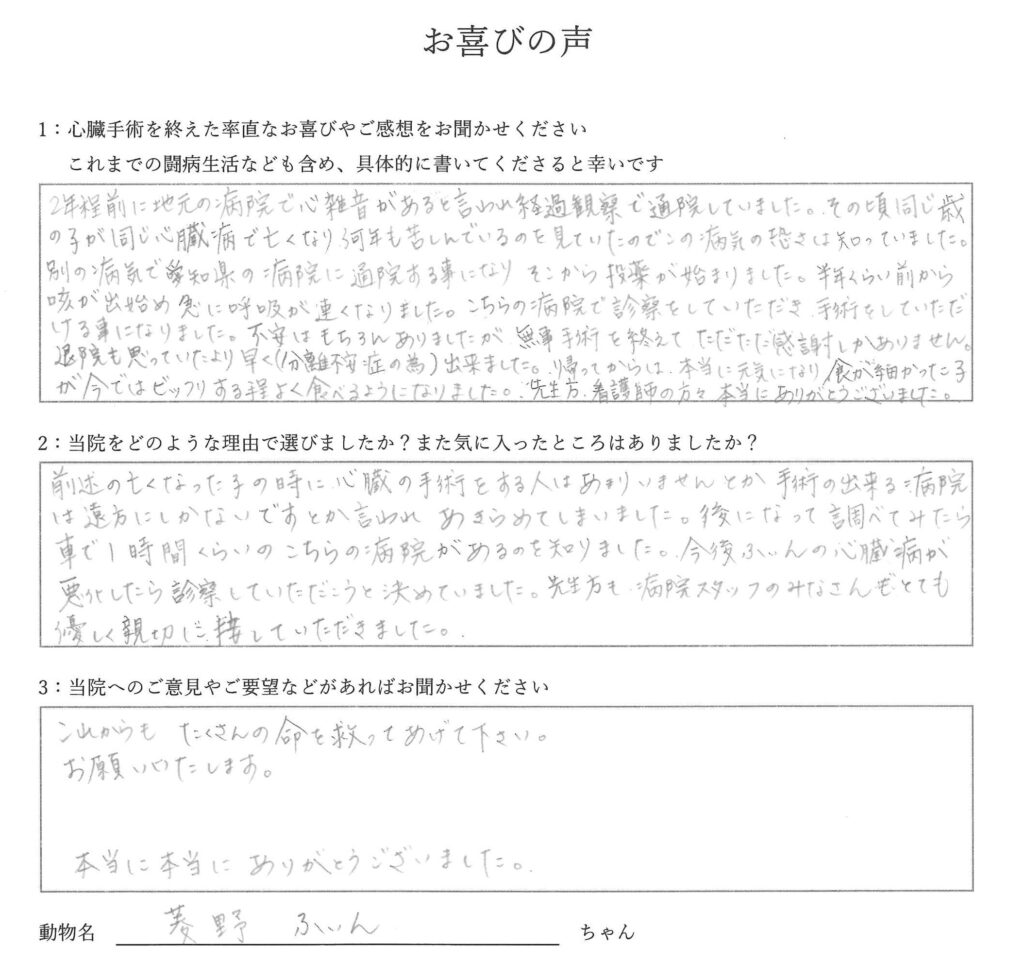 お喜びの声
1：心臓手術を終えた率直なお喜びやご感想をお聞かせください
これまでの闘病生活なども含め、具体的に書いてくださると幸いです
2年程前に地元の病院で心雑音があると言われ経過観察で通院していました。その頃同じ歳
の子が同じ心臓病で亡くなり何年も苦しんでいるのを見ていたのでこの病気の恐さは知っていました。
別の病気で愛知県の病院に通院する事になり そこから投薬が始まりました。半年くらい前から
咳が出始め急に呼吸が速くなりました。こちらの病院で診察をしていただき 手術をしていただ
ける事になりました。不安はもちろんありましたが 無事手術を終えて ただただ感謝しかありません。
退院も思っていたより早く(分離不安症の為)出来ました。帰ってからは、本当に元気になり 食が細かった子
が今ではビックリする程よく食べるようになりました。先生方、看護師の方々 本当にありがとうございました。
2：当院をどのような理由で選びましたか？また気に入ったところはありましたか？
前述の亡くなった子の時に 心臓の手術をする人はあまりいませんとか 手術の出来る病院
は遠方にしかないですとか言われ あきらめてしまいました。後になって調べてみたら
車で1時間くらいの こちらの病院があるのを知りました。今後ふぃんの心臓病が
悪化したら診察していただこうと決めていました。先生方も 病院スタッフのみなさんもとても
優しく親切に接していただきました。
3：当院へのご意見やご要望などがあればお聞かせください
これからも たくさんの命を救ってあげて下さい。
お願いいたします。
本当に本当に ありがとうございました。
動物名 菱野 ふぃん ちゃん